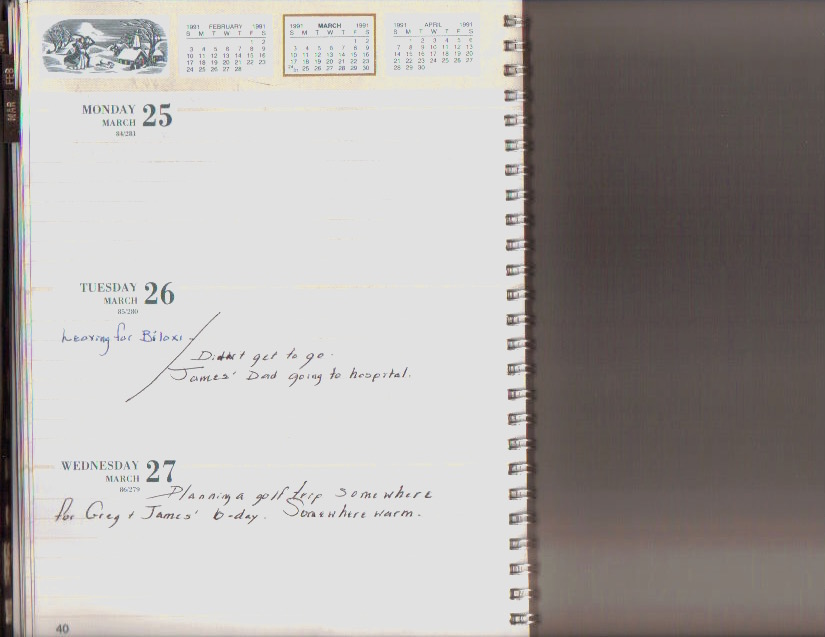 MAR
FEB
1991 FEBRUARY 1991
S M T W T F S
1 2
3 4 5 6 7 8 9
10 11 12 13 14 15 16
17 18 19 20 21 22 23
24 25 26 27 28
1991 MARCH 1991
S M T W T F S
1 2
3 4 5 6 7 8 9
10 11 12 13 14 15 16
17 18 19 20 21 22 23
24/31 25 26 27 28 29 30
1991 APRIL 1991
S M T W T F S
1 2 3 4 5 6
7 8 9 10 11 12 13
14 15 16 17 18 19 20
21 22 23 24 25 26 27
28 29 30
MONDAY 25
MARCH
84/281
TUESDAY 26
MARCH
85/280
Leaving for Biloxi
Didn't get to go.
James' Dad going to hospital.
WEDNESDAY 27
MARCH
86/279
Planning a golf trip somewhere
for Greg + James' b-day. Somewhere warm.
40